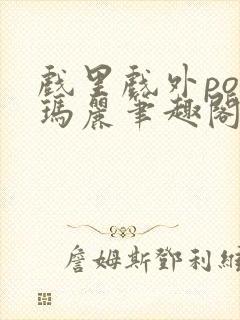 戲里戲外po
瑪麗筆趣閣
詹姆斯鄧利維